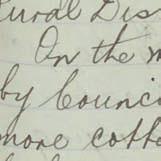 Rural Dis
On the m
by Counci
more cott